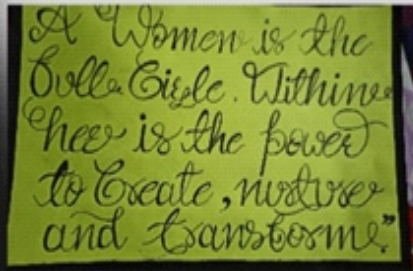 A Women is the
Full Circle. Within
her is the power
to Create, nurture
and transform."